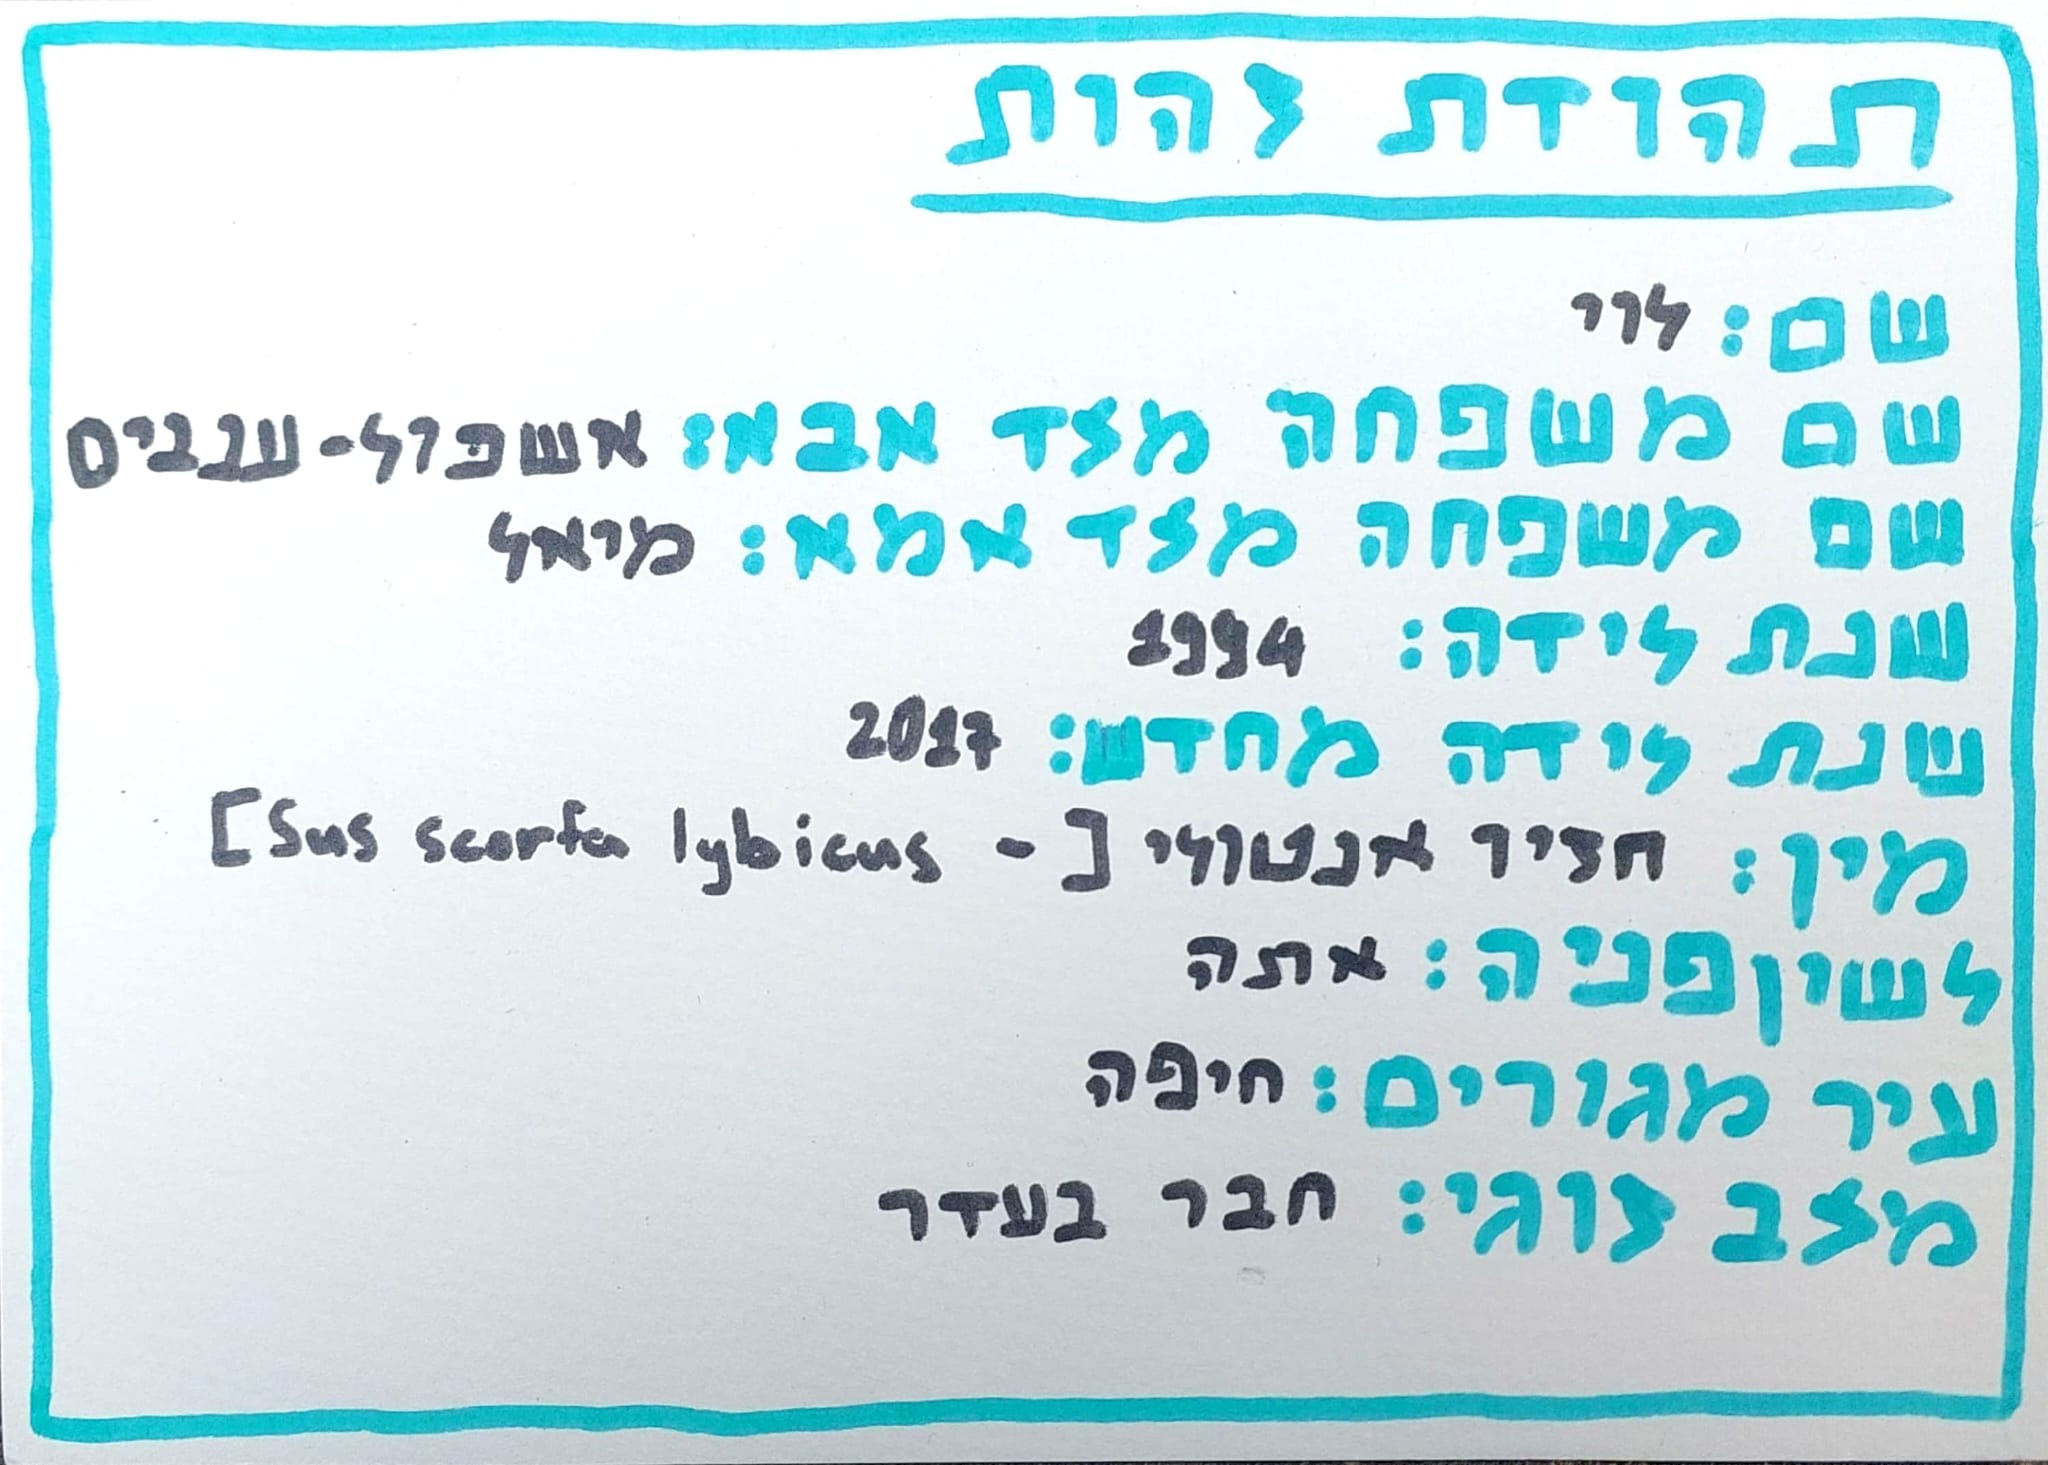 תהודת זהות
שם: לוי
שם משפחה מצד אבא: אשכול-ענבים
שם משפחה מצד אמא: מיאל
שנת לידה: 1994
שנת לידה מחדש: 2017
מין: חזיר אנטולי [Sus scorfa lybicus - ]
לשין פניה: אתה
עיר מגורים: חיפה
מצב זוגי: חבר בעדר